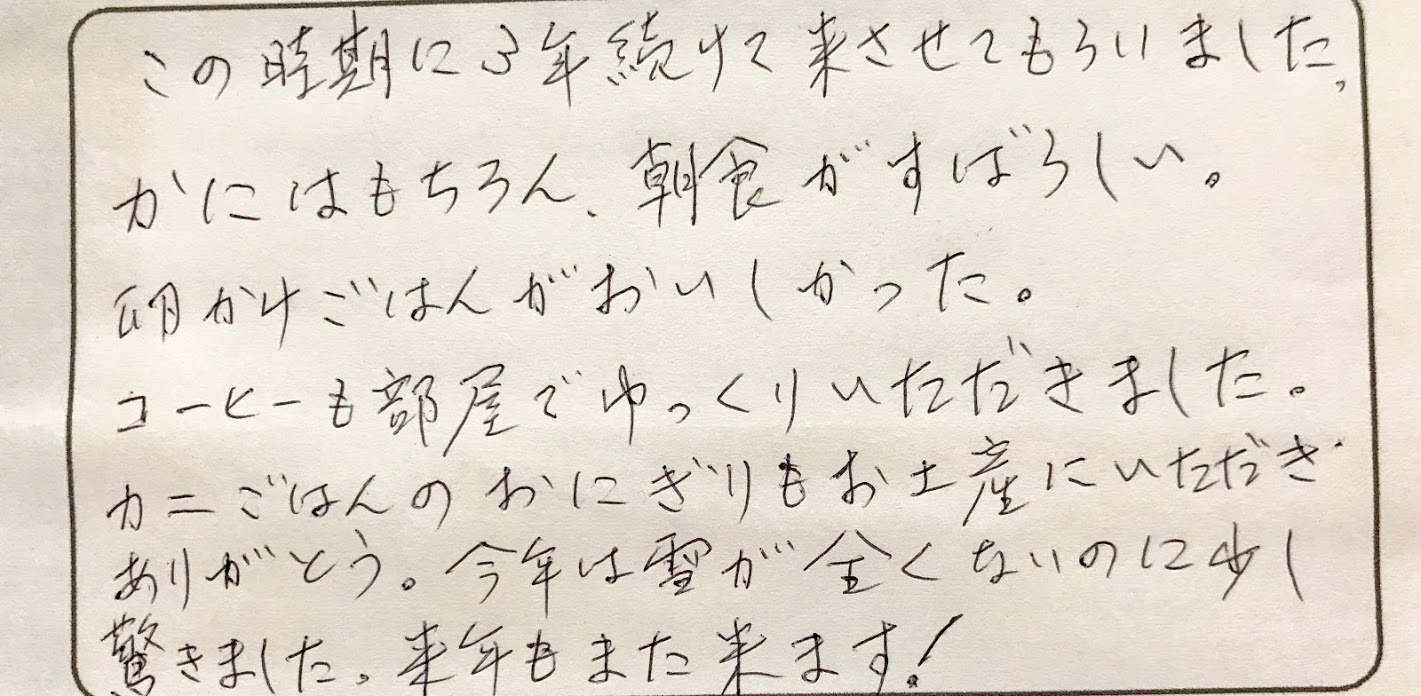 この時期に3年続けて来させてもらいました。
かにはもちろん、朝食がすばらしい。
卵かけごはんがおいしかった。
コーヒーも部屋でゆっくりいただきました。
カニごはんのおにぎりもお土産にいただき
ありがとう。今年は雪が全くないのに少し
驚きました。来年もまた来ます!